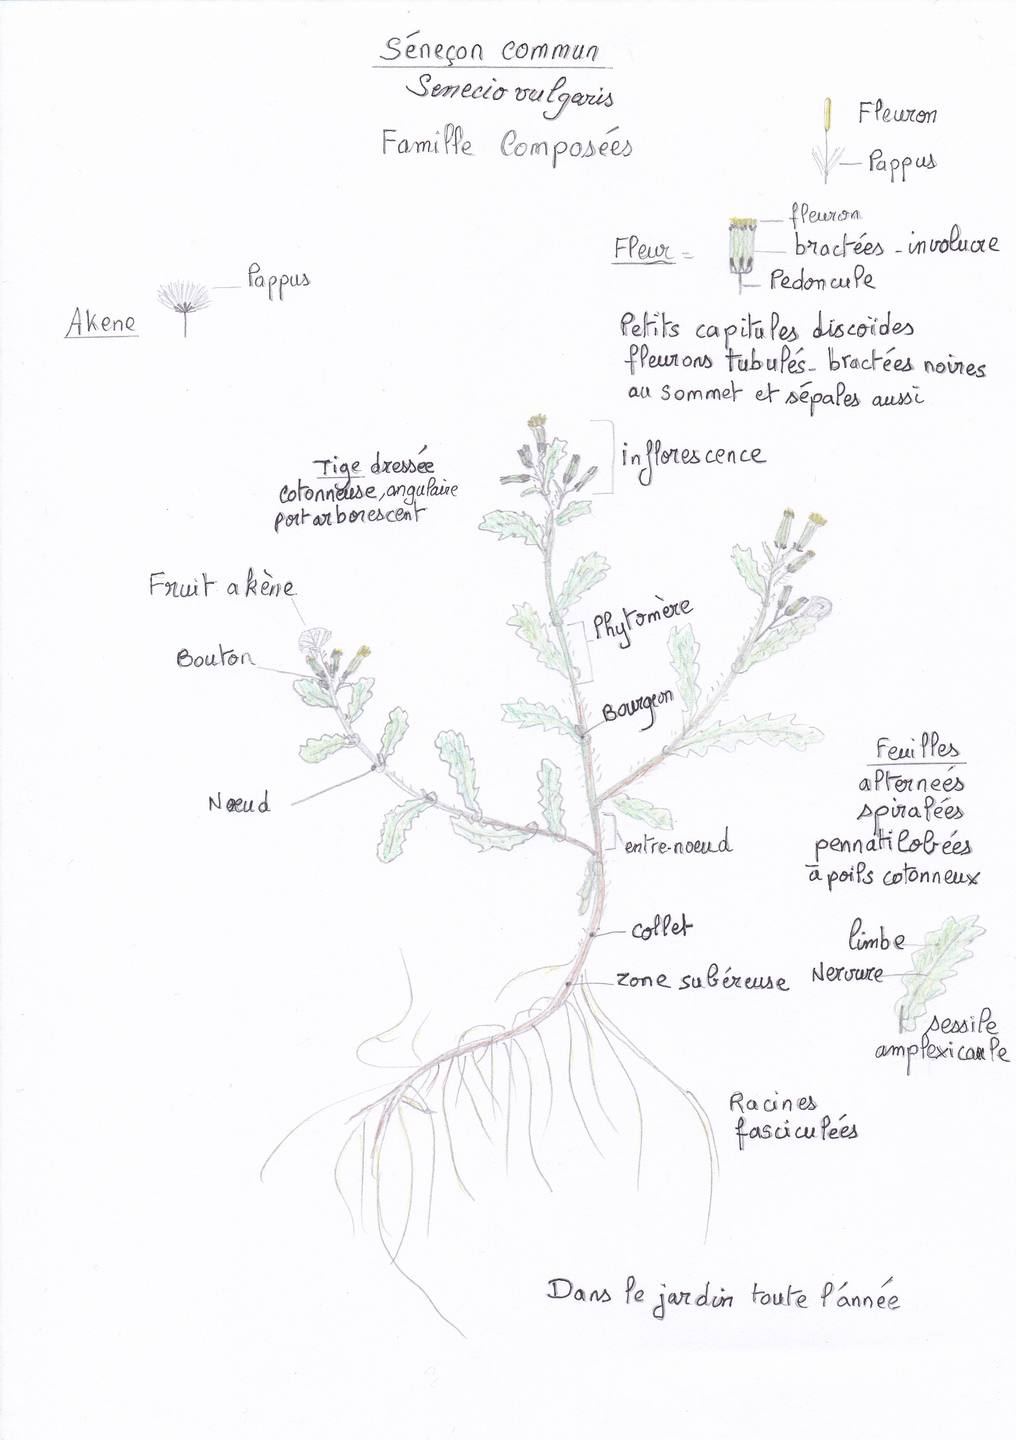 Séneçon commun
Senecio vulgaris
Famille Composées
Fleuron
Pappus
fleuron
Fleur =
bractées - involucre
Pedoncule
Pappus
Akene
Petits capitules discoïdes
fleurons tubulés - bractées noires
au sommet et sépales aussi
inflorescence
Tige dressée
cotonneuse, angulaire
port arborescent
Fruit akène
Phytomère
Bouton
Bourgeon
Nœud
entre-noeud
Feuilles
alterneés
spiralées
pennatilobées
à poils cotonneux
collet
limbe
Nervure
zone subéreuse
sessile
amplexicaule
Racines
fasciculées
Dans le jardin toute l'année